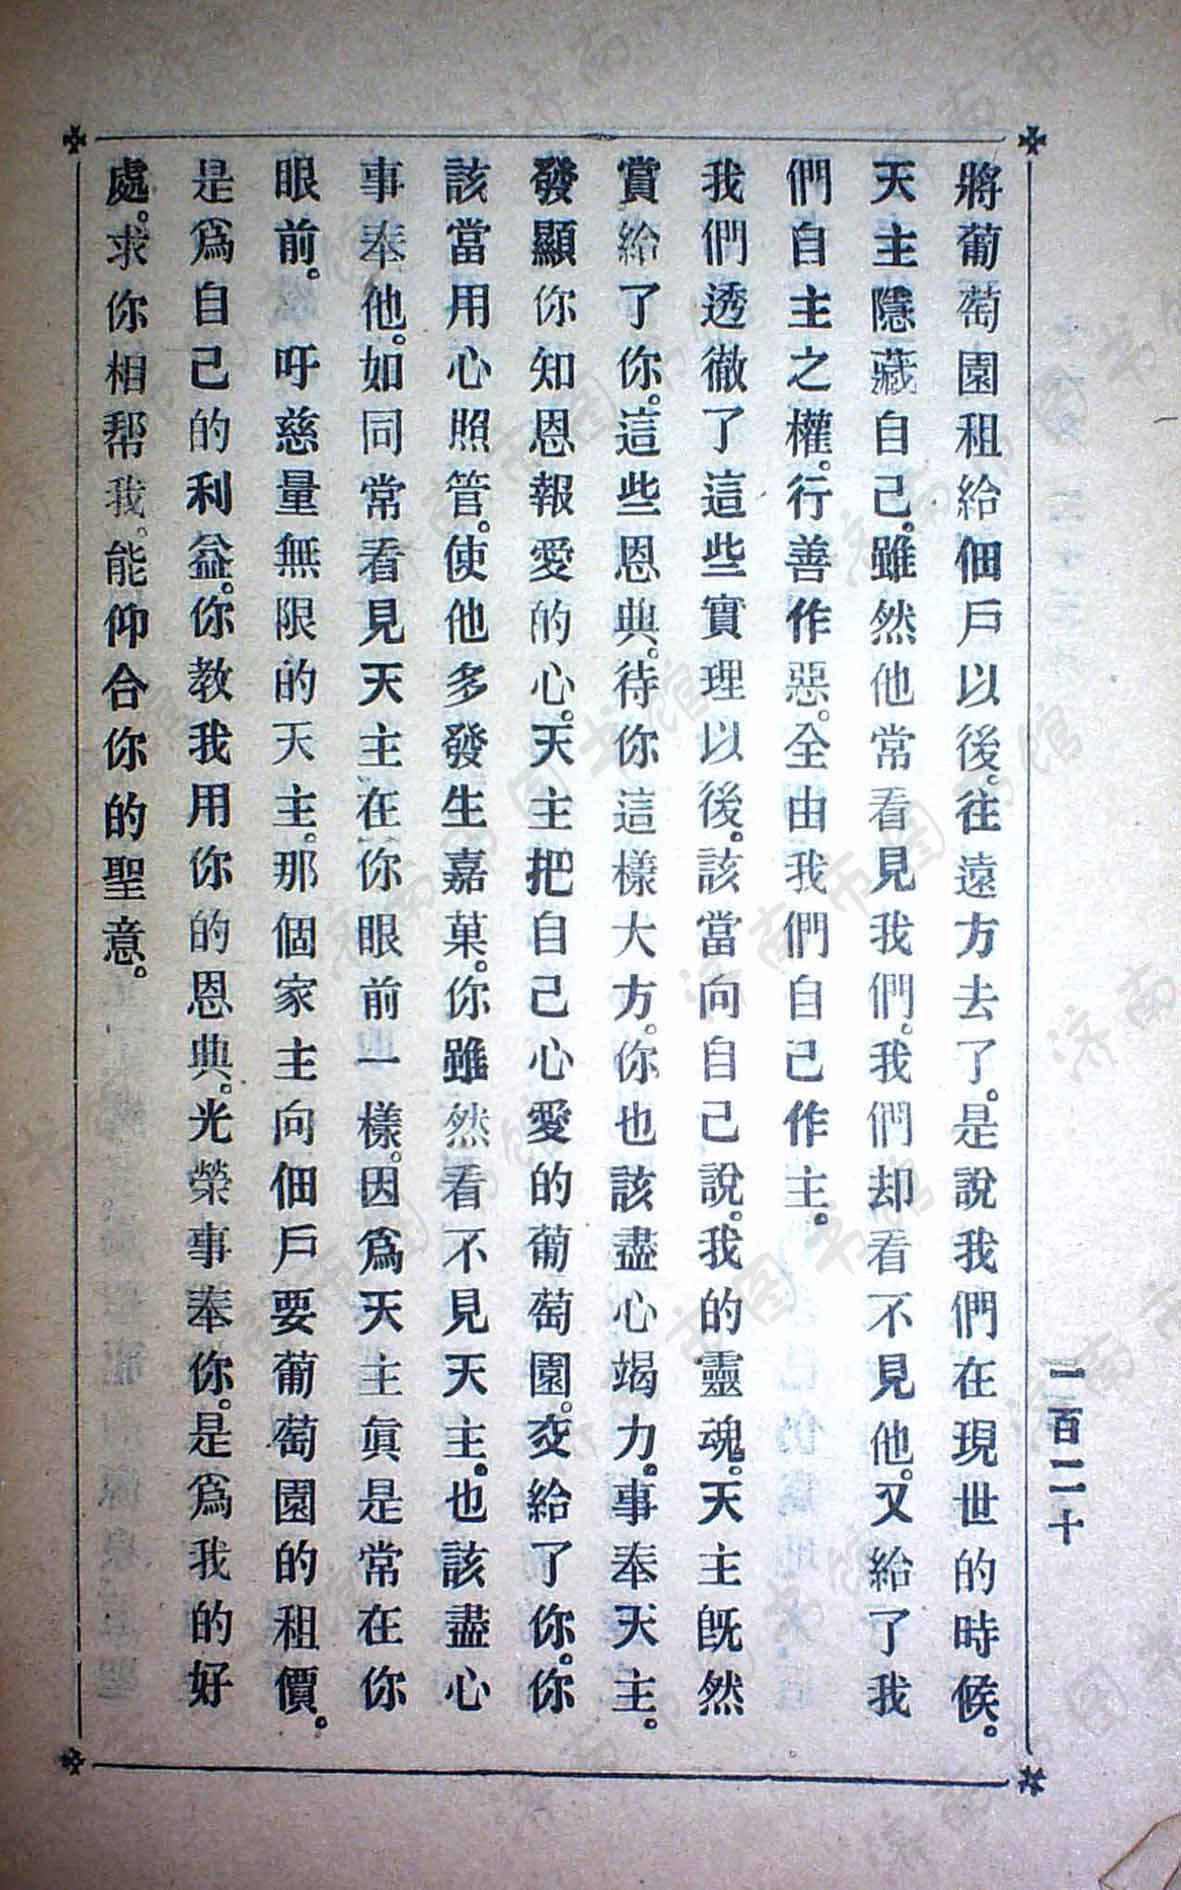 將葡萄園租給佃戶以後。往遠方去了。是說我們在現世的時候。
天主隱藏自己。雖然他常看見我們。我們却看不見他。又給了我
們自主之權。行善作惡。全由我們自己作主。
我們透徹了這些實理以後。該當向自己說。我的靈魂。天主旣然
賞給了你。這些恩典。待你這樣大方。你也該盡心竭力。事奉天主。
發顯你知恩報愛的心。天主把自己心愛的葡萄園。交給了你。你
該當用心照管。使他多發生嘉菓。你雖然看不見天主。也該盡心
事奉他。如同常看見天主在你眼前一樣。因爲天主眞是常在你
眼前。吁慈量無限的天主。那個家主向佃戶要葡萄園的租價。
是爲自己的利益。你教我用你的恩典。光榮事奉你。是爲我的好
處。求你相帮我。能仰合你的聖意。
一百二十
济南市图书馆